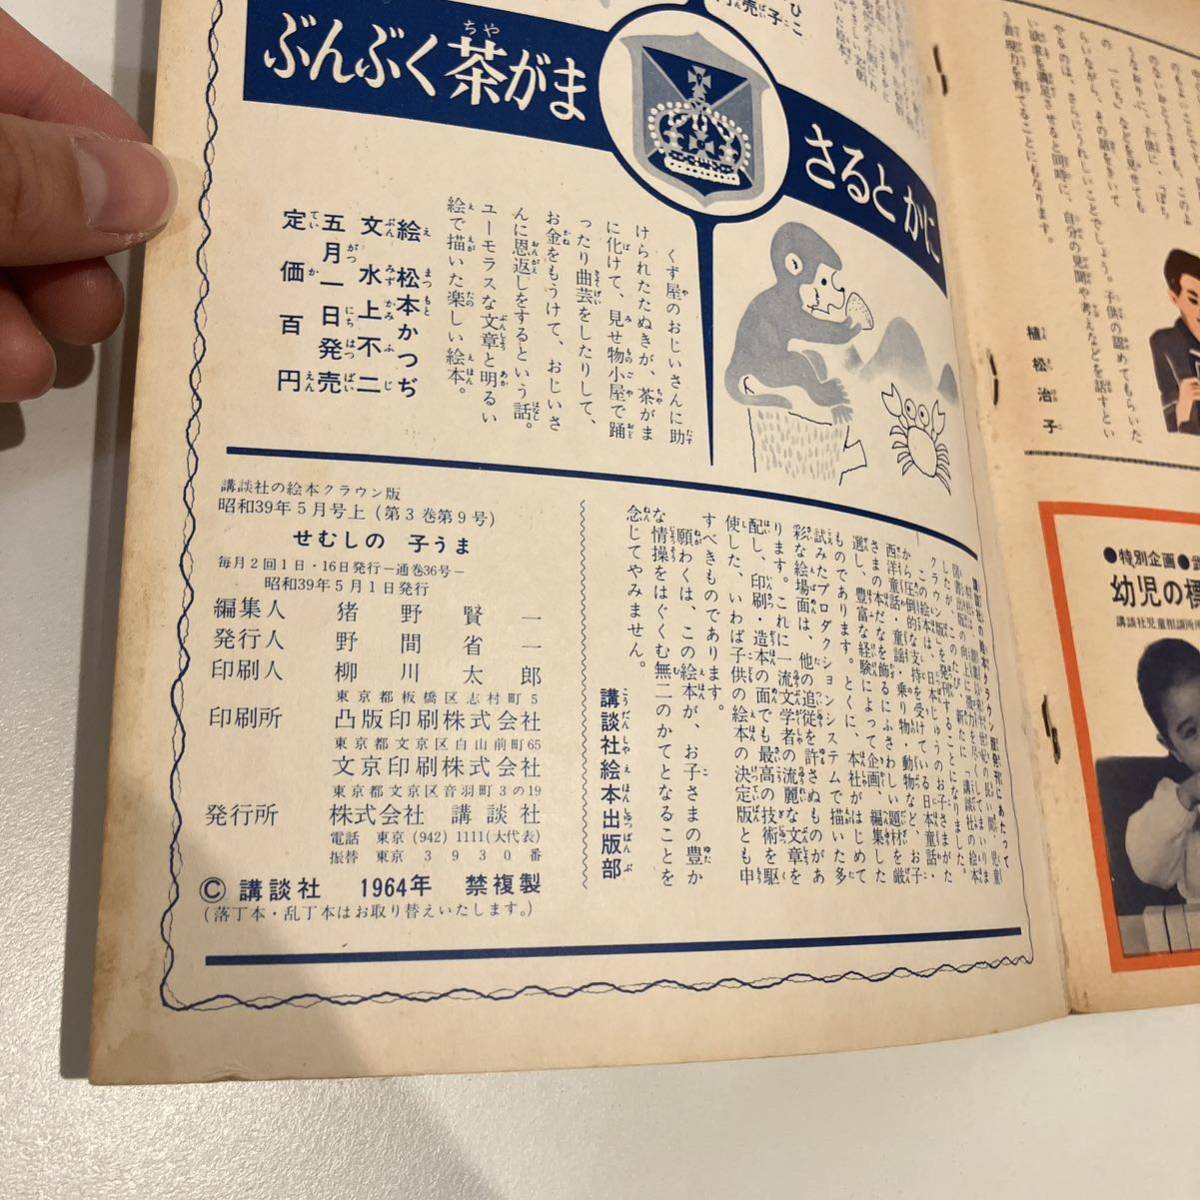 ぶんぶく茶がま
ちや
さるとかに
くず屋のおじいさんに助
けられたたぬきが、茶がま
に化けて、見せ物小屋で踊
ったり曲芸をしたりして、
お金をもうけて、おじいさ
んに恩返しをするという話。
ユーモラスな文章と明るい
絵で描いた楽しい絵本。
絵 松本かつぢ
文 水上不二
五月一日発売
定価 百円
講談社の絵本クラウン版
昭和39年5月号上(第3巻第9号)
せむしの 子うま
毎月2回1日・16日発行―通巻36号―
昭和39年5月1日発行
編集人 猪野賢一
発行人 野間省一
印刷人 柳川太郎
東京都板橋区志村町5
印刷所 凸版印刷株式会社
東京都文京区白山前町65
文京印刷株式会社
東京都文京区音羽町3の19
発行所 株式会社 講談社
電話 東京(942)1111(大代表)
振替 東京 3930番
©講談社 1964年 禁複製
(落丁本・乱丁本はお取り替えいたします。)
クラウン版」を発刊することになりました。
この絵本は、日本じゅうのお子さまがた
から圧倒的な支持を受けている日本童話・
西洋童話・童謡・乗り物・動物など、お子
さまの本だなを飾るにふさわしい題材を厳
選し、豊富な経験によって企画、編集した
ものであります。とくに、本社がはじめて
試みたプロダクションシステムで描いた多
彩な絵場面は、他の追従を許さぬものがあ
ります。これに一流文学者の流麗な文章を
配し、印刷・造本の面でも最高の技術を駆
使した、いわば子供の絵本の決定版とも申
すべきものであります。
願わくは、この絵本が、お子さまの豊か
な情操をはぐくむ無二のかてとなることを
念じてやみません。
講談社絵本出版部
の一にち」などを見せても
らいながら、その話をきいて
やるのは、さらにうれしいことでしょう。子供の認めてもらいた
い欲求を満足させると同時に、自分の見聞や考えなどを話すとい
う表現力を育てることにもなります。
植松治子
●特別企画●
幼児の標
講談社児童相談所所